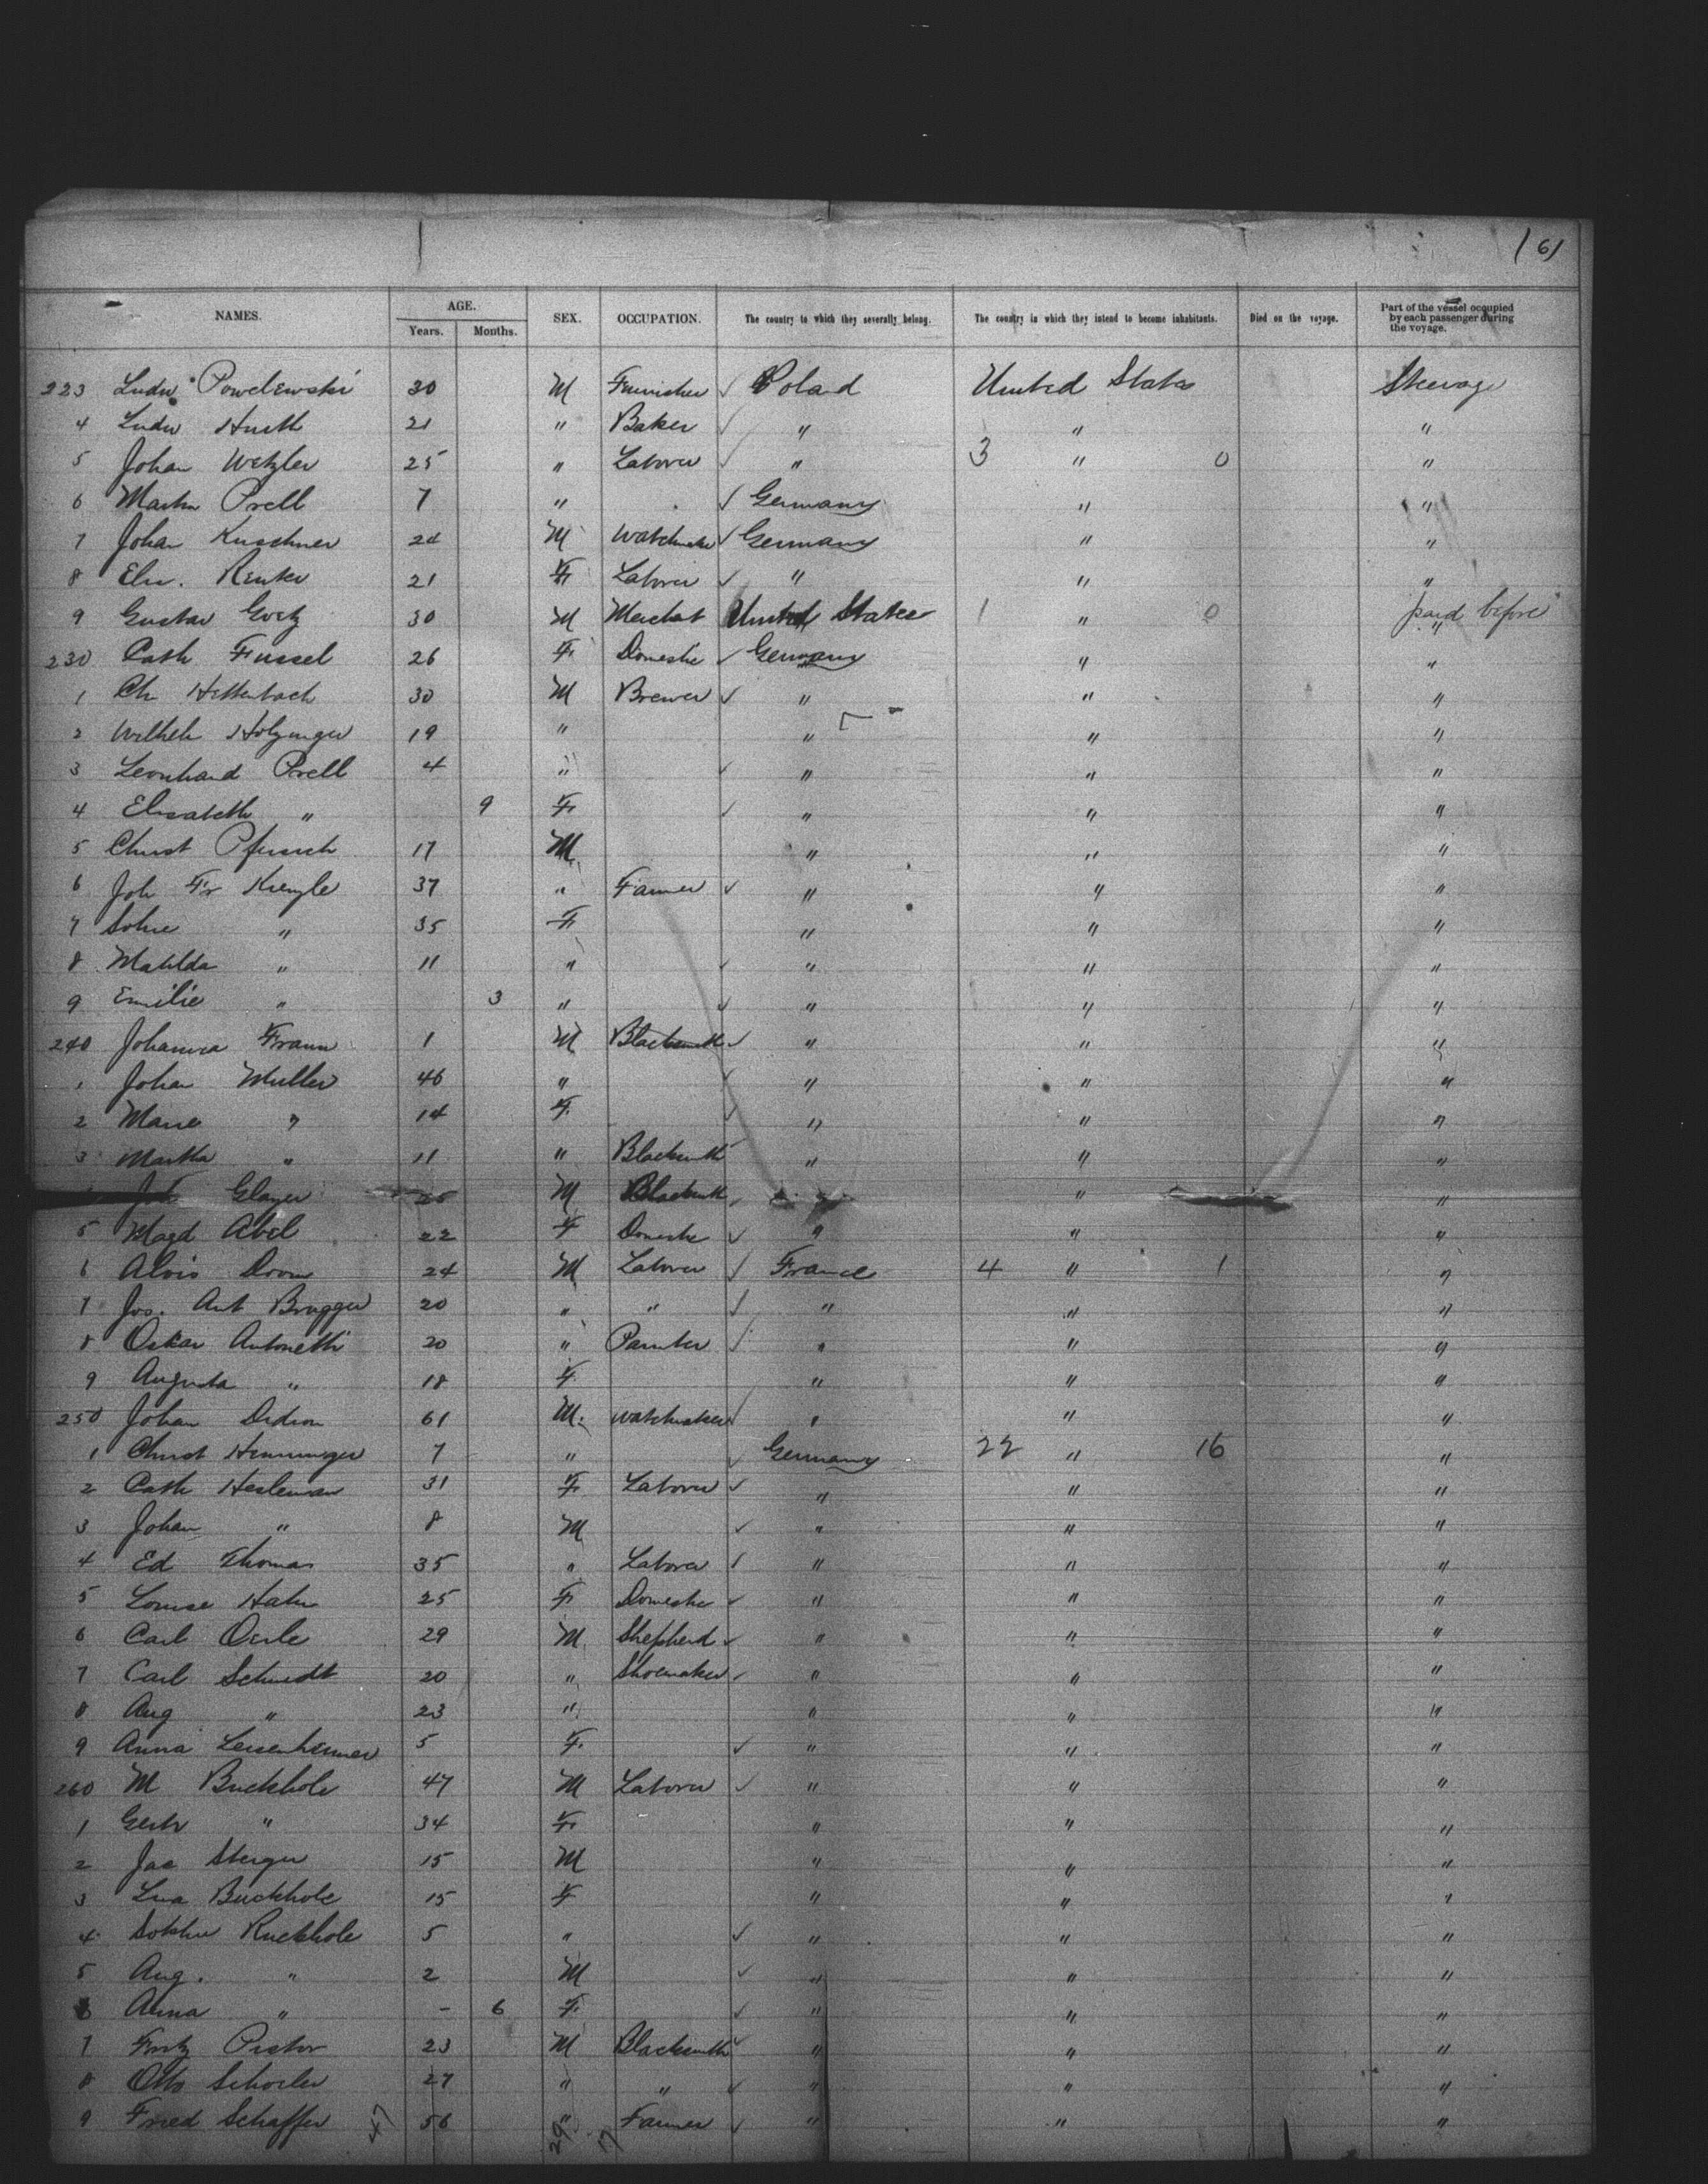 161
NAMES. AGE. SEX. OCCUPATION. The country to which they severally belong. The country in which they intend to become inhabitants. Died on the voyage. Part of the vessel occupied by each passenger during the voyage.
Years. Months.
223 Ludw. Powelewski 30 M Polad United States Steerage
4 Ludw 21 " Baker " " "
5 Johan Wetzler 25 " Laborer " 3 " 0 "
6 Martin Prell 7 " Germany " "
7 Johan Kuschner 24 M Watchmaker Germany " "
8 Elis. Renker 21 F Laborer " " "
9 Gustav Goetz 30 M Merchat United States 1 " 0 paid before "
230 Cath Fussel 26 F Domestic Germany " "
1 Ch Hettenbach 30 M Brewer " " "
2 Wilhelm Holzinger 19 " " " "
3 Leonhard Prell 4 " " " "
4 Elisabeth " 9 F " " "
5 Christ 17 M " " "
6 Joh Fr Kienzle 37 " Farmer " " "
7 " 35 F " " "
8 Matilda " 11 " " " "
9 Emilie " 3 " " " "
240 Johanna 1 M Blacksmith " " "
1 Johan Muller 46 " " " "
2 Marie " 14 F " " "
3 Martha " 11 " Blacksmith " " "
Glaser 25 M Blacksmith " "
5 Magd Abel 22 F Domestic " " "
6 Alois 24 M Laborer France 4 " 1 "
7 Jos. Ant Brugger 20 " " " " "
8 Oskar Antonetti 20 " Painter " " "
9 Augusta " 18 F " " "
250 Johan Didion 61 M. Watchmaker " " "
1 Christ Henninger 7 " Germany 22 " 16 "
2 Cath Hesleman 31 F Laborer " " "
3 Johan " 8 M " " "
4 Ed Thomas 35 " Laborer " " "
5 Louise Hahn 25 F Domestic " " "
6 Carl 29 M Shepherd " " "
7 Carl Schmidt 20 " Shoemaker " " "
8 Aug " 23 " " " "
9 Anna Leisenheimer 5 F " " "
260 M Buckhole 47 M Laborer " " "
1 Gertr " 34 F " " "
2 Jac Steiger 15 M " " "
3 Buckhole 15 F " " "
4 Ruckhole 5 " " " "
5 Aug. " 2 M " " "
6 Anna " - 6 F " " "
7 Fritz Pistor 23 M Blacksmith " " "
8 Otto 27 " " " " "
9 Fried Schaffer 56 " Farmer " " "
47 29 17